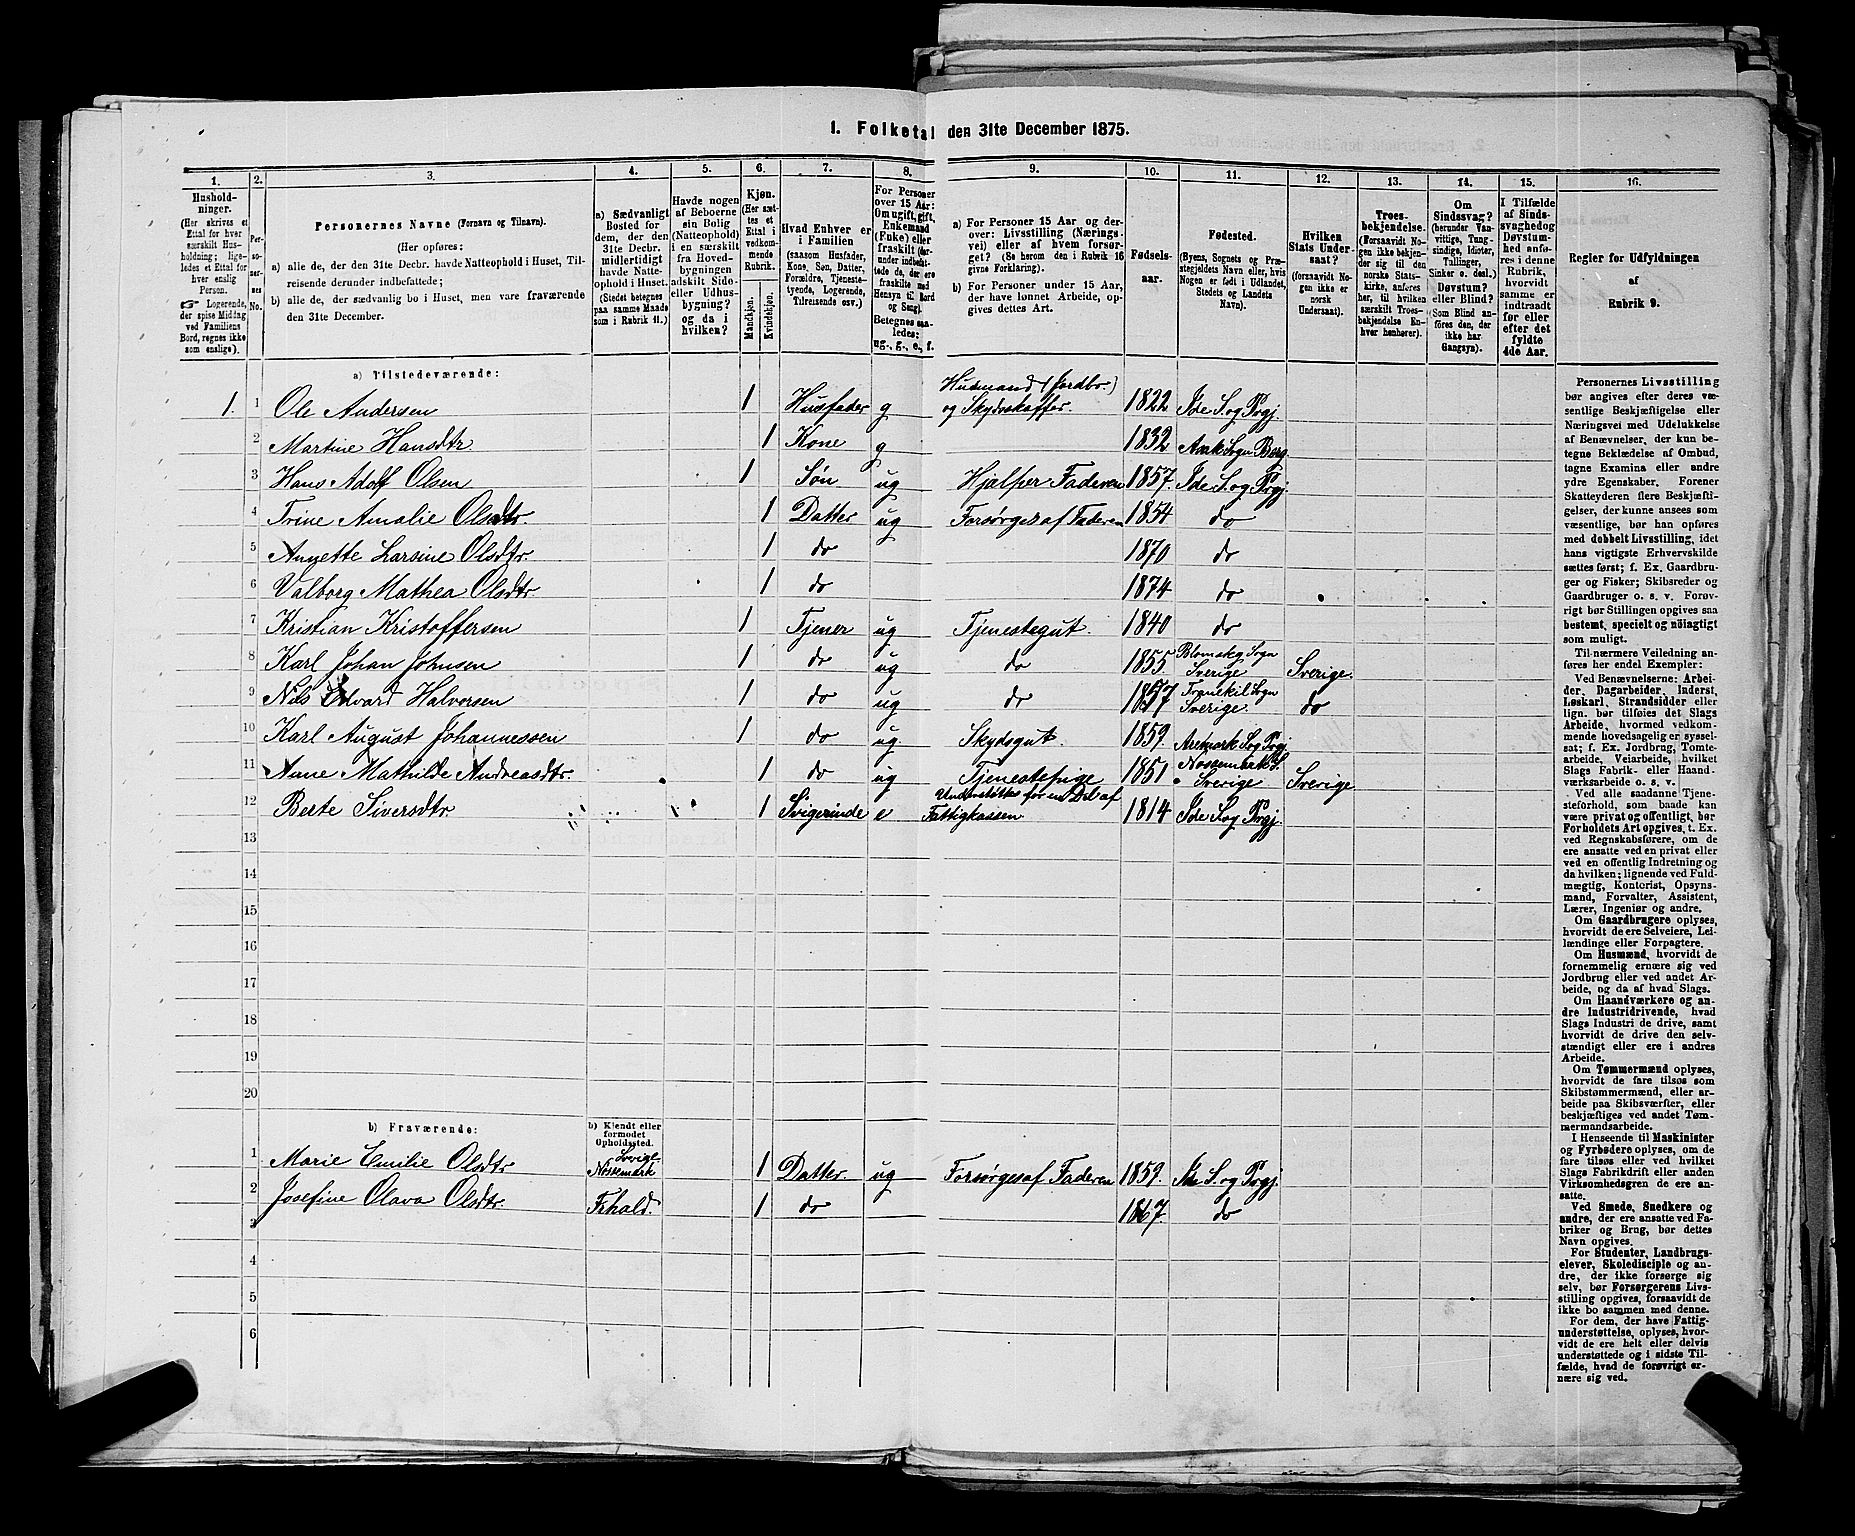 1. Folketal den 31te December 1875.
1. 2. 3. 4. 5. 6. 7. 8. 9. 10. 11. 12. 13. 14. 15. 16.
Hushold-
ninger.
(Her skrives et
Ettal for hver
særskilt Hus-
holdning; lige-
ledes et Ettal for
hver enslig
Person.
☞ Logerende,
der spise Middag
ved Familiens
Bord, regnes ikke
som enslige).
Per-
so-
ner-
nes
No.
Personernes Navne (Fornavn og Tilnavn).
(Her opføres:
a) alle de, der den 31te Decbr. havde Natteophold i Huset, Til-
reisende derunder indbefattede;
b) alle de, der sædvanlig bo i Huset, men vare fraværende
den 31te December.
a) Sædvanligt
Bosted for
dem, der den
31te Decbr.
midlertidigt
havde Natte-
ophold i Huset.
(Stedet betegnes
paa samme Maade
som i Rubrik 11.)
Havde nogen
af Beboerne
sin Bolig
(Natteophold)
i en særskilt
fra Hoved-
bygningen
adskilt Side-
eller Udhus-
bygning?
og da i
hvilken?
Kjøn.
(Her sæt-
tes et
Ettal i
vedkom-
mende
Rubrik.
Mandkjøn.
Kvindekjøn.
Hvad Enhver er
i Familien
(saasom Husfader,
Kone, Søn, Datter,
Forældre, Tjeneste-
tyende, Logerende,
Tilreisende osv.)
For Personer
over 15 Aar:
Om ugift, gift,
Enkemand
(Enke) eller
fraskilt (der-
under indbefat-
tede de, der ere
fraskilte med
Hensyn til Bord
og Seng).
Betegnes saa-
ledes:
ug., g., e., f.
a) For Personer 15 Aar og der-
over: Livsstilling (Nærings-
vei) eller af hvem forsør-
get? (Se herom den i Rubrik 16
givne Forklaring).
b) For Personer under 15 Aar,
der have lønnet Arbeide, op-
gives dettes Art.
Fødsels-
aar.
Fødested.
(Byens, Sognets og Præ-
stegjeldets Navn eller, hvis
Nogen er født i Udlandet,
Stedets og Landets
Navn).
Hvilken
Stats Under-
saat?
(forsaavidt No-
gen ikke er
norsk
Undersaat).
Troes-
bekjendelse.
(Forsaavidt No-
gen ikke bekjen-
der sig til den
norske Stats-
kirke, anføres
her, til hvilken
særskilt Troes-
bekjendelse En-
hver henhører).
Om
Sindssvag?
(herunder Van-
vittige, Tung-
sindige, Idioter,
Tullinger,
Sinker o. desl.)
Døvstum?
eller Blind?
(Som Blind an-
føres den, der
ikke har
Gangsyn).
I Tilfælde
af Sinds-
svaghed og
Døvstum-
hed anfø-
res i denne
Rubrik,
hvorvidt
samme er
indtraadt
før eller
efter det
fyldte
4de Aar.
Regler for Udfyldningen
af
Rubrik 9.
a) Tilstedeværende:
1. 1 Ole Andersen 1 Husfader g Husmand (Jordbr.) og Skydsskaffer. 1822 Ide S. og Prgj.
2 Martine Hansdtr. 1 Kone g 1832 Ask Sogn Berg
3 Hans Adolf Olsen 1 Søn ug Hjelper Faderen 1857. Ide S. og Prgj.
4 Trine Amalie Olsdtr. 1 Datter ug Forsørges af Faderen 1854 do
5 Annette Larsine Olsdtr. 1 do 1870 do
6 Valborg Mathea Olsdtr. 1 do 1874 do
7 Kristian Kristoffersen 1 Tjener ug Tjenestegut. 1840 do
8 Karl Johan Johnsen 1 do ug do 1855 Blomskog Sogn Sverige Sverige.
9 Nils Edvard Halvorsen 1 do ug do 1857 Trankil Sogn Sverige. do
10 Karl August Johannessen 1 do ug. Skydsgut. 1859. Aremark S. og Prgj.
11 Anne Mathilde Andreasdtr. 1 do ug Tjenestepige 1851 Nossemark S. Sverige Sverige
12 Berte Siversdtr. 1 Svigerinde e Understøttes for en Del af Fattigkassen 1814 Ide S. og Prgj.
13
14
15
16
17
18
19
20
b) Fraværende:
b) Kjendt eller
formodet
Opholdssted.
1 Marie Emilie Olsdtr. Sverige Nossemark 1 Datter. ug Forsørges af Faderen 1859. Ide S. og Prgj.
2 Josefine Olava Olsdtr. Frhald. 1 do 1867. do
3
4
5
6
Personernes Livsstilling
bør angives efter deres væ-
sentlige Beskjæftigelse eller
Næringsvei med Udelukkelse
af Benævnelser, der kun be-
tegne Beklædelse af Ombud,
tagne Examina eller andre
ydre Egenskaber. Forener
Skatteyderen flere Beskjæfti-
gelser, der kunne ansees som
væsentlige, bør han opføres
med dobbelt Livsstilling, idet
hans vigtigste Erhvervskilde
sættes først; f. Ex. Gaardbru-
ger og Fisker; Skibsreder og
Gaardbruger o. s. v. Forøv-
rigt bør Stillingen opgives saa
bestemt, specielt og nöiagtigt
som muligt.
Til nærmere Veiledning an-
føres her endel Exempler:
Ved Benævnelserne: Arbei-
der, Dagarbeider, Inderst,
Løskarl, Strandsidder eller
lign. bør tilføies det Slags
Arbeide, hvormed vedkom-
mende hovedsagelig er syssel-
sat; f. Ex. Jordbrug, Tomte-
arbeide, Veiarbeide, hvilket
Slags Fabrik- eller Haand-
værksarbeide o. s. v.
Ved alle saadanne Tjene-
steforhold, som baade kan
være privat og offentligt, bør
Forholdets Art opgives, t. Ex.
ved Regnskabsførere, om de
ere ansatte ved en privat eller
ved en offentlig Indretning og
da hvilken; lignende ved Fuld-
mægtig, Kontorist, Opsyns-
mand, Forvalter, Assistent,
Lærer, Ingeniør og andre.
Om Gaardbrugere oplyses,
hvorvidt de ere Selveiere, Lei-
lændinge eller Forpagtere.
Om Husmænd, hvorvidt de
fornemmelig ernære sig ved
Jordbrug eller ved andet Ar-
beide, og da af hvad Slags.
Om Haandværkere og an-
dre Industridrivende, hvad
Slags Industri de drive, samt
hvorvidt de drive den selv-
stændigt eller ere i andres
Arbeide.
Om Tømmermænd oplyses,
hvorvidt de fare tilsøs som
Skibstømmermænd, eller ar-
beide paa Skibsværfter, eller
beskjæftiges ved andet Tøm-
mermandsarbeide.
I Henseende til Maskinister
og Fyrbødere oplyses, om de
fare tilsøs eller ved hvilket
Slags Fabrikdrift eller anden
Virksomhedsgren de ere an-
satte.
Ved Smede, Snedkere og
andre, der ere ansatte ved Fa-
briker og Brug, bør dettes
Navn opgives.
For Studenter, Landbrugs-
elever, Skoledisciple og an-
dre, der ikke forsørge sig
selv, bør Forsørgerens Livs-
stilling opgives, forsaavidt de
ikke bo sammen med denne.
For dem, der have Fattig-
understøttelse, oplyses, hvor-
vidt de ere helt eller delvis
understøttede og i sidste Til-
fælde, hvad de forøvrigt er-
nære sig ved.